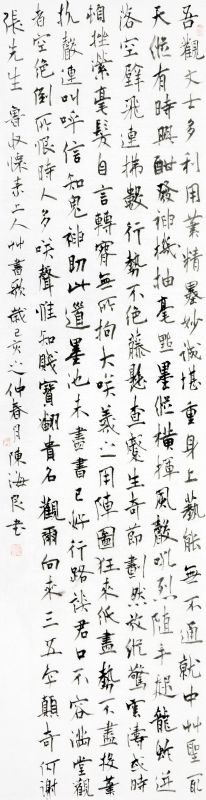 吾觀文士多利用筆精墨妙誠堪重身上藝能無不通就中艸聖最
天縱有時興酣發神機抽毫點墨縱橫揮風聲吼烈隨手起龍蛇迸
落空壁飛連拂數行勢不絕藤懸查蹙生奇節劃然放縱驚雲濤或時
頓挫縈毫髮自言轉腕無所拘大咲羲之用陣圖狂來紙盡勢不盡投筆
抗聲連叫呼信知鬼神助此道墨池未盡書已好行路談君口不容滿堂觀
者空絕倒所恨時人多咲聲惟知賤實翻貴名觀爾向來三五字顛奇何謝
張先生 魯收懷素上人艸書歌歲己亥之仲春月陳海良書